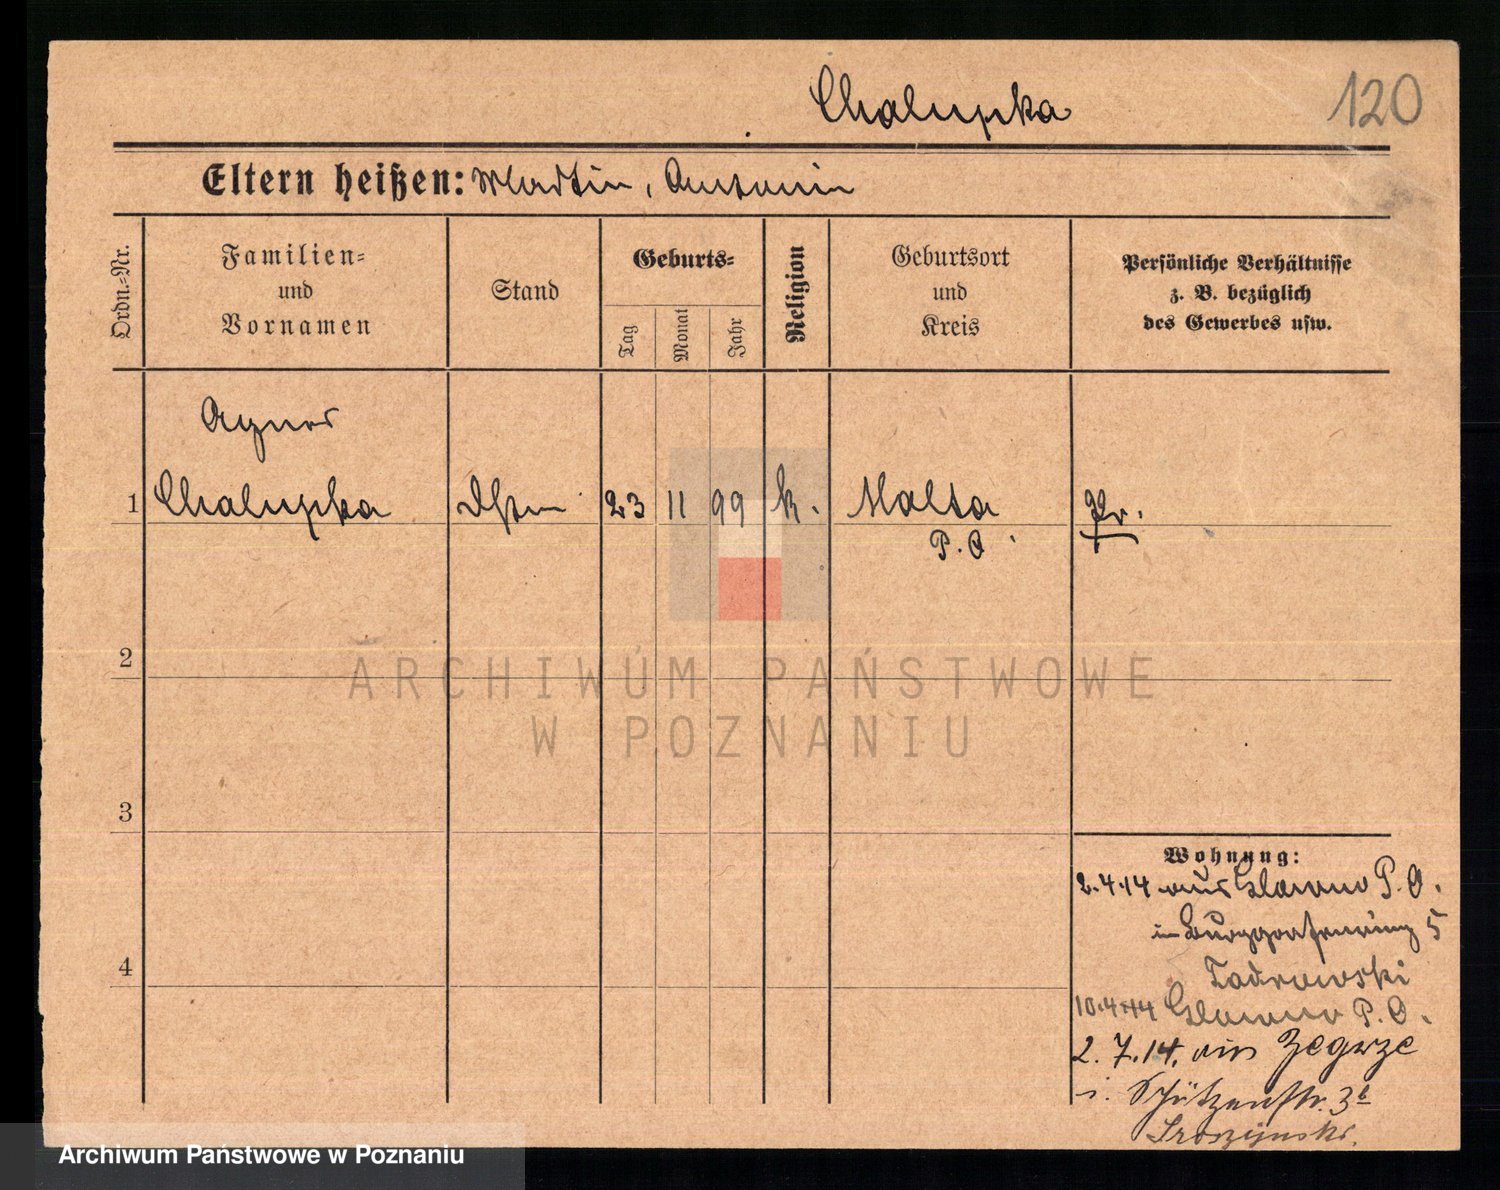 Chalupka
120
Eltern heißen: Martin, Antonin
Ordn.-Nr.
Familien-
und
Vornamen
Stand
Geburts-
Tag
Monat
Jahr
Religion
Geburtsort
und
Kreis
Persönliche Verhältnisse
z. B. bezüglich
des Gewerbes usw.
Agnes
1 Chalupka 23 11 99 k. Malta Pr.
P. O.
2
3
4
Wohnung:
2.4.14 aus Glowno P. O.
in Burggrafenring 5
10.4.14 Glowno P. O.
2. 7. 14. aus Zegrze
i. Schützenstr. 3b
ARCHIWUM PAŃSTWOWE
W POZNANIU
Archiwum Państwowe w Poznaniu